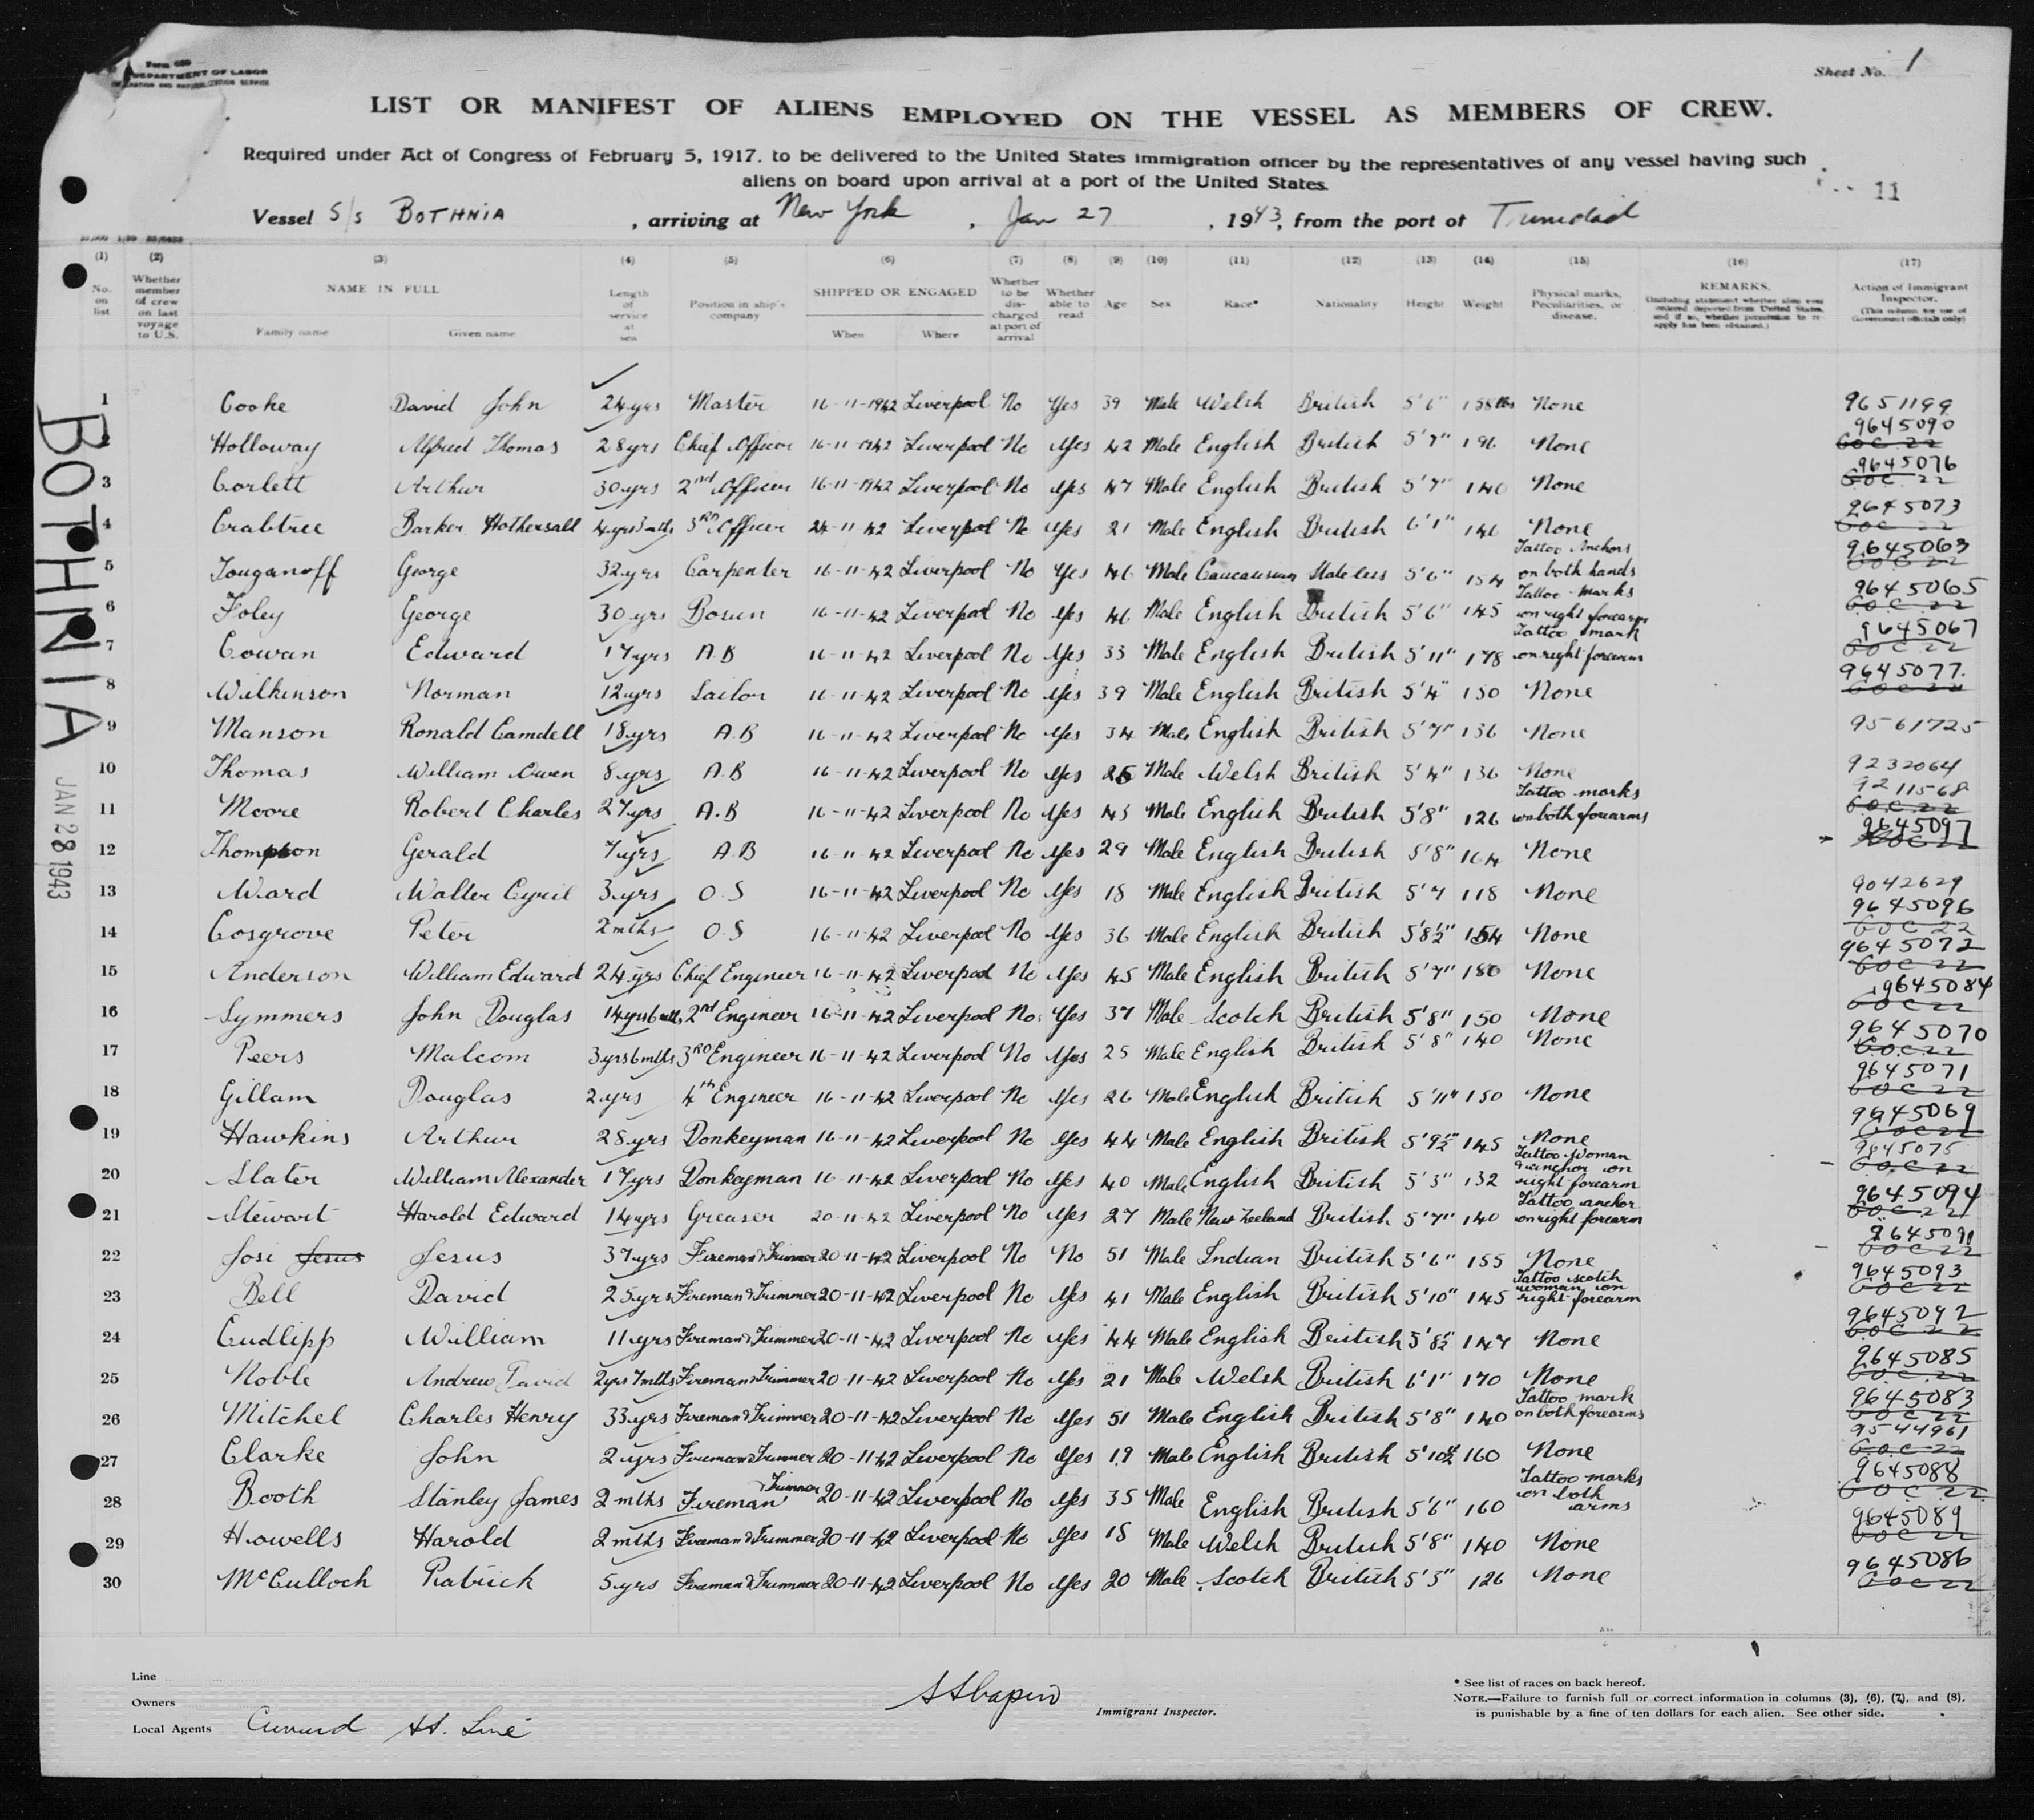 Form 689
DEPARTMENT OF LABOR
IMMIGRATION AND NATURALIZATION SERVICE
Sheet No. 1
LIST OR MANIFEST OF ALIENS EMPLOYED ON THE VESSEL AS MEMBERS OF CREW.
Required under Act of Congress of February 5, 1917, to be delivered to the United States immigration officer by the representatives of any vessel having such
aliens on board upon arrival at a port of the United States.
11
Vessel S/s BOTHNIA , arriving at New York , Jan 27 , 1943, from the port of Trinidad
(1) (2) (3) (4) (5) (6) (7) (8) (9) (10) (11) (12) (13) (14) (15) (16) (17)
No. on list
Whether member of crew on last voyage to U.S.
NAME IN FULL
Family name Given name
Length of service at sea
Position in ship's company
SHIPPED OR ENGAGED
When Where
Whether to be discharged at port of arrival
Whether able to read
Age
Sex
Race*
Nationality
Height
Weight
Physical marks, Peculiarities, or disease.
REMARKS.
(Including statement whether alien ever ordered deported from United States, and if so, whether permission to reapply has been obtained.)
Action of Immigrant Inspector.
(This column for use of Government officials only)
1 Cooke David John 24 yrs Master 16-11-1942 Liverpool No Yes 39 Male Welsh British 5'6" 158 lbs None 9651199
2 Holloway Alfred Thomas 28 yrs Chief Officer 16-11-1942 Liverpool No Yes 42 Male English British 5'7" 196 None 9645090 GOC 22
3 Corlett Arthur 30 yrs 2nd Officer 16-11-1942 Liverpool No Yes 47 Male English British 5'7" 140 None 9645076 GOC 22
4 Crabtree Barker Hothersall 4 yrs 3 mths 3RD Officer 24-11-42 Liverpool No Yes 21 Male English British 6'1" 146 None 9645073 GOC 22
5 Touganoff George 32 yrs Carpenter 16-11-42 Liverpool No Yes 46 Male Caucausian Stateless 5'6" 154 Tattoo Anchors on both hands 9645063 GOC 22
6 Foley George 30 yrs Bosun 16-11-42 Liverpool No Yes 46 Male English British 5'6" 145 Tattoo marks on right forearm 9645065 GOC 22
7 Cowan Edward 17 yrs A.B 16-11-42 Liverpool No Yes 33 Male English British 5'11" 178 Tattoo mark on right forearm 9645067 GOC 22
8 Wilkinson Norman 12 yrs Sailor 16-11-42 Liverpool No Yes 39 Male English British 5'4" 150 None 9645077 GOC 22
9 Manson Ronald Camdell 18 yrs A.B 16-11-42 Liverpool No Yes 34 Male English British 5'7" 136 None 9561725
10 Thomas William Owen 8 yrs A.B 16-11-42 Liverpool No Yes 26 Male Welsh British 5'4" 136 None 9232064
11 Moore Robert Charles 27 yrs A.B 16-11-42 Liverpool No Yes 43 Male English British 5'8" 126 Tattoo marks on both forearms 9211568 GOC 22
12 Thompson Gerald 7 yrs A.B 16-11-42 Liverpool No Yes 29 Male English British 5'8" 164 None 9645097 GOC 22
13 Ward Walter Cyril 3 yrs O.S 16-11-42 Liverpool No Yes 18 Male English British 5'7 118 None 9042629
14 Cosgrove Peter 2 mths O.S 16-11-42 Liverpool No Yes 36 Male English British 5'8½" 154 None 9645096 GOC 22
15 Anderson William Edward 24 yrs Chief Engineer 16-11-42 Liverpool No Yes 45 Male English British 5'7" 180 None 9645072 GOC 22
16 Symmers John Douglas 14 yrs 6 mths 2nd Engineer 16-11-42 Liverpool No Yes 37 Male Scotch British 5'8" 150 None 9645084 GOC 22
17 Peers Malcom 3 yrs 6 mths 3RD Engineer 16-11-42 Liverpool No Yes 25 Male English British 5'8" 140 None 9645070 GOC 22
18 Gillam Douglas 2 yrs 4th Engineer 16-11-42 Liverpool No Yes 26 Male English British 5'11" 150 None 9645071 GOC 22
19 Hawkins Arthur 28 yrs Donkeyman 16-11-42 Liverpool No Yes 44 Male English British 5'9½" 145 None 9645069 GOC 22
20 Slater William Alexander 17 yrs Donkeyman 16-11-42 Liverpool No Yes 40 Male English British 5'3" 132 Tattoo Woman & anchor on right forearm 9645075 GOC 22
21 Stewart Harold Edward 14 yrs Greaser 20-11-42 Liverpool No Yes 27 Male New Zeeland British 5'7" 140 Tattoo anchor on right forearm 9645094 GOC 22
22 Josi Jesus Jesus 37 yrs Fireman & Trimmer 20-11-42 Liverpool No No 51 Male Indian British 5'6" 155 None 9645091 GOC 22
23 Bell David 25 yrs Fireman & Trimmer 20-11-42 Liverpool No Yes 41 Male English British 5'10" 145 Tattoo scotch woman on right forearm 9645093 GOC 22
24 Cudlipp William 11 yrs Fireman & Trimmer 20-11-42 Liverpool No Yes 44 Male English British 5'8½" 147 None 9645092 GOC 22
25 Noble Andrew David 2 yrs 7 mths Fireman & Trimmer 20-11-42 Liverpool No Yes 21 Male Welsh British 6'1" 170 None 9645085 GOC 22
26 Mitchel Charles Henry 33 yrs Fireman & Trimmer 20-11-42 Liverpool No Yes 51 Male English British 5'8" 140 Tattoo mark on both forearms 9645083 GOC 22
27 Clarke John 2 yrs Fireman & Trimmer 20-11-42 Liverpool No Yes 19 Male English British 5'10½" 160 None 9544961 GOC 22
28 Booth Stanley James 2 mths Fireman & Trimmer 20-11-42 Liverpool No Yes 35 Male English British 5'6" 160 Tattoo marks on both arms 9645088 GOC 22
29 Howells Harold 2 mths Fireman & Trimmer 20-11-42 Liverpool No Yes 18 Male Welsh British 5'8" 140 None 9645089 GOC 22
30 McCulloch Patrick 5 yrs Fireman & Trimmer 20-11-42 Liverpool No Yes 20 Male Scotch British 5'3" 126 None 9645086 GOC 22
BOTHNIA
JAN 28 1943
Line
Owners
Local Agents Cunard SS. Line
Immigrant Inspector.
* See list of races on back hereof.
NOTE.—Failure to furnish full or correct information in columns (3), (6), (7), and (8),
is punishable by a fine of ten dollars for each alien. See other side.